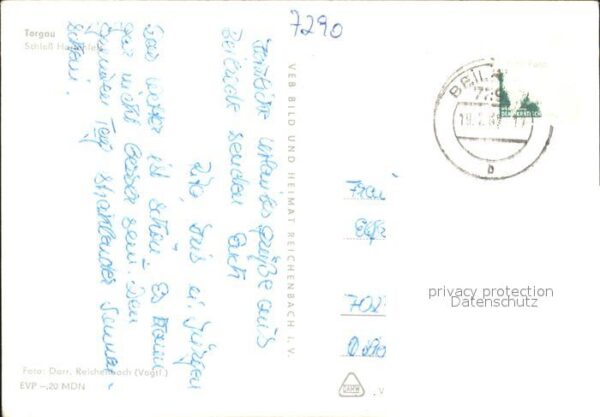 7290
Torgau
Schloß
Herzliche Urlaubsgrüße aus
Beilrode senden Euch
Rita, u. Jürgen
Das Wetter ist schön – Es kann
gar nicht besser sein. Den
ganzen Tag strahlender Sonnen-
schein.
VEB BILD UND HEIMAT REICHENBACH i. V.
Foto: Darr, Reichenbach (Vogtl.)
EVP –.20 MDN
BEIL
729
b
Frau
702
privacy protection
Datenschutz
V